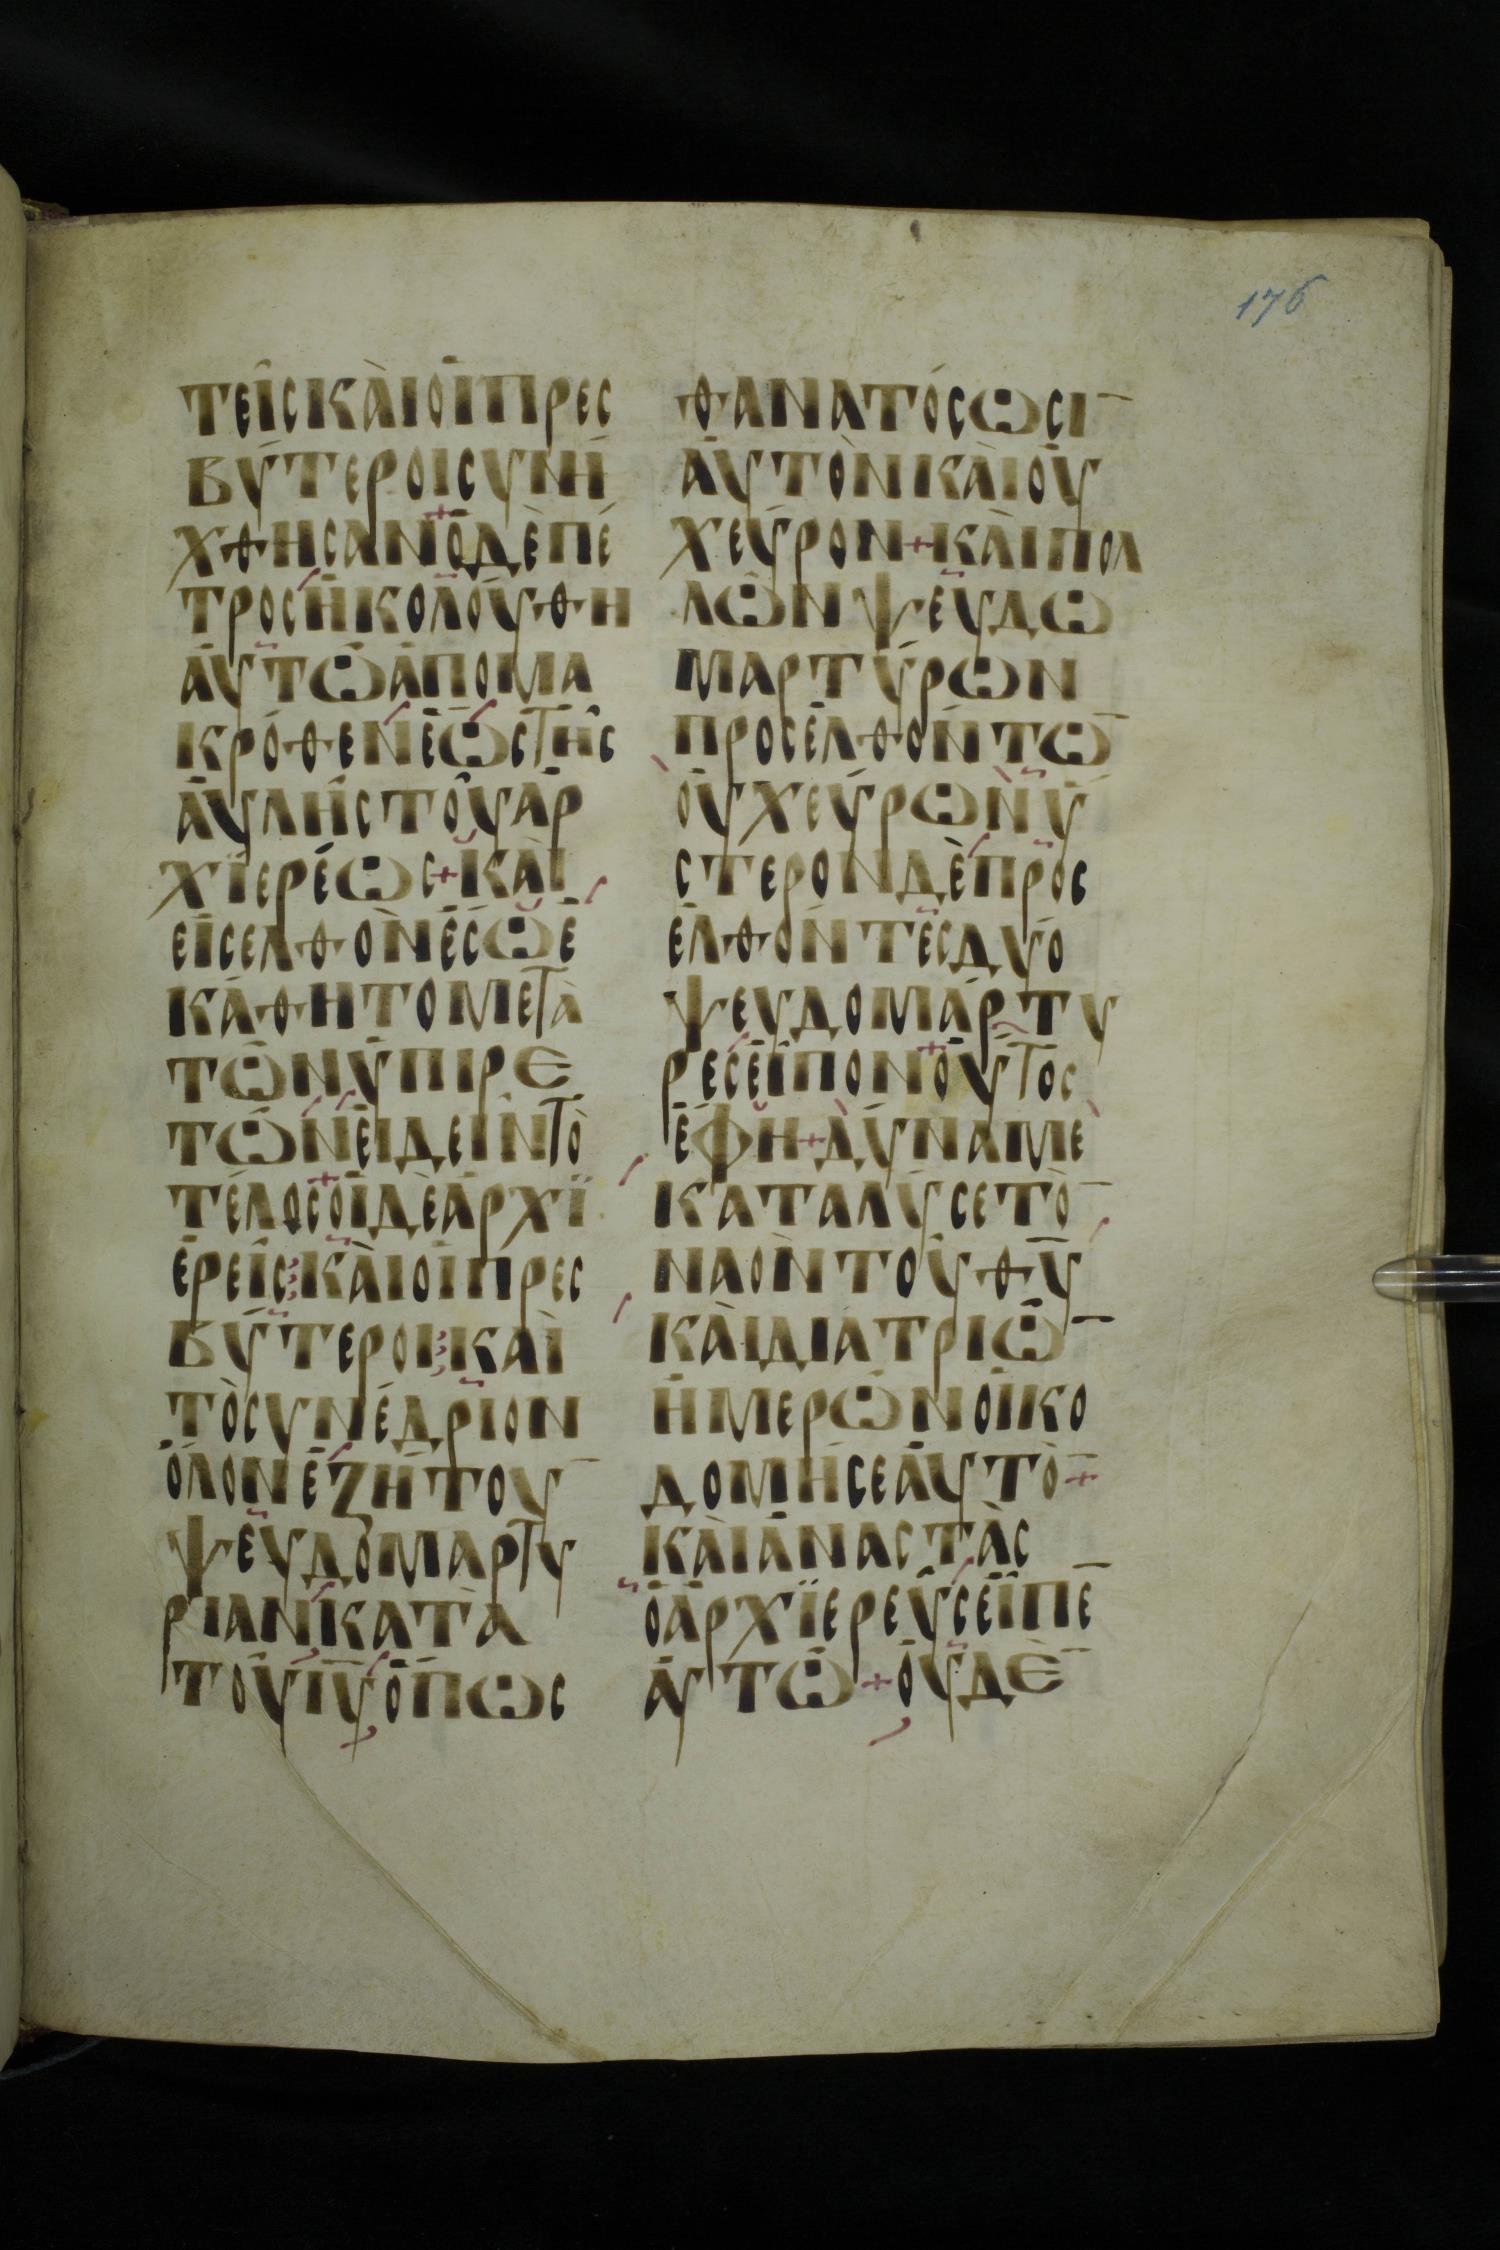 176
ΤΕΙ͂Ϲ ΚΑῚ ΟἹ ΠΡΕϹ
ΒΎΤΕΡΟΙ ϹΥΝΉ
ΧΘΗϹΑΝ + Ὁ ΔῈ ΠΈ
ΤΡΟϹ ἨΚΟΛΟΎΘΗ
ἈΥΤΩ͂ ἈΠΟ ΜΑ
ΚΡΌΘΕΝ ἝΩϹ ΤΗ͂Ϲ
ἈΥΛΗ͂Ϲ ΤΟΥ͂ ἈΡ
ΧΪΕΡΈΩϹ + ΚΑῚ
ΕἸϹΕΛΘῸΝ ἜϹΩ Ἐ
ΚΆΘΗΤΟ ΜΕΤᾺ
ΤΩ͂Ν ὙΠΙΡΕ
ΤΩ͂Ν ἸΕΙΔΕΙΝ ΤῸ
ΤΈΛΟϹ + ΟἹ ΔῈ ἈΡΧΪ
ΕΡΕΙ͂Ϲ ΚΑῚ ΟἹ ΠΡΕϹ
ΒΎΤΕΡΟΙ ΚΑῚ
ΤῸ ϹΥΝΈΔΡΙΟΝ
ὍΛΟΝ ἘΖΉΤΟΥ̅
ΨΕΥΔΟΜΑΡΤΥ
ΡΙΑΝ ΚΑΤᾺ
ΤΟΥ͂ Ι̅Υ̅ ὍΠΩϹ
ΘΑΝΑΤΌϹΩϹΙ̅
ἈΥΤῸΝ ΚΑῚ ΟΥ̓
ΧΕΥ͂ΡΟΝ + ΚΑῚ ΠΟΛ
ΛΩ͂Ν ΨΕΥΔΩ
ΜΑΡΤΎΡΩΝ
ΠΡΟϹΕΛΘΌΝΤΩ̅
ΟΥ̓Χ ΕΥ͂ΡΩΝ Ὑ
ϹΤΕΡΟΝ ΔῈ ΠΡΟϹ
ΕΛΘΌΝΤΕϹ ΔΎΟ
ΨΕΥΔΟΜΆΡΤΥ
ΡΕϹ ΕἸΠΟΝ + ΟΥ͂ΤΟϹ
ἜΦΗ + ΔΎΝΑΜΕ
ΚΑΤΑΛΥ͂ϹΕ ΤῸ̅
ΝΑῸΝ ΤΟΥ͂ Θ̅Υ̅
ΚΑῚ ΔΙᾺ ΤΡΙΩ̅
ἩΜΕΡΩ͂Ν ΟἸΚΟ
ΔΟΜΗ͂ϹΕ ἈΥΤῸ̅ +
ΚΑῚ ἈΝΑϹΤᾺϹ
Ὁ ἈΡΧΪΕΡΕῪϹ ΕἾΠΕ̅
ἈΥΤΩ͂ + ΟΥ̓ΔῈ̅